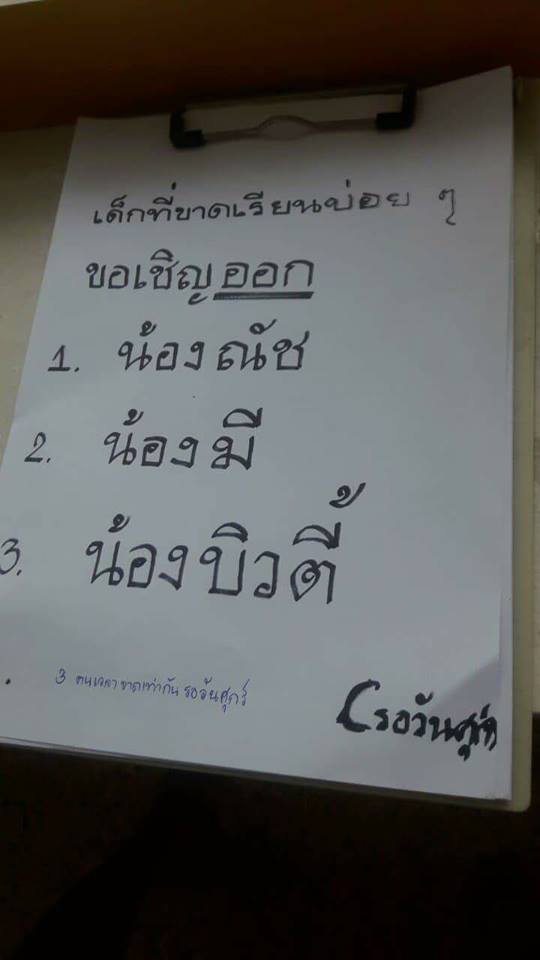 เด็กที่ขาดเรียนบ่อย ๆ
ขอเชิญออก
1. น้องณัช
2. น้องมี
3. น้องบิวตี้
3 คนเวลาขาดเท่ากัน รอวันศุกร์
(รอวันศุกร์